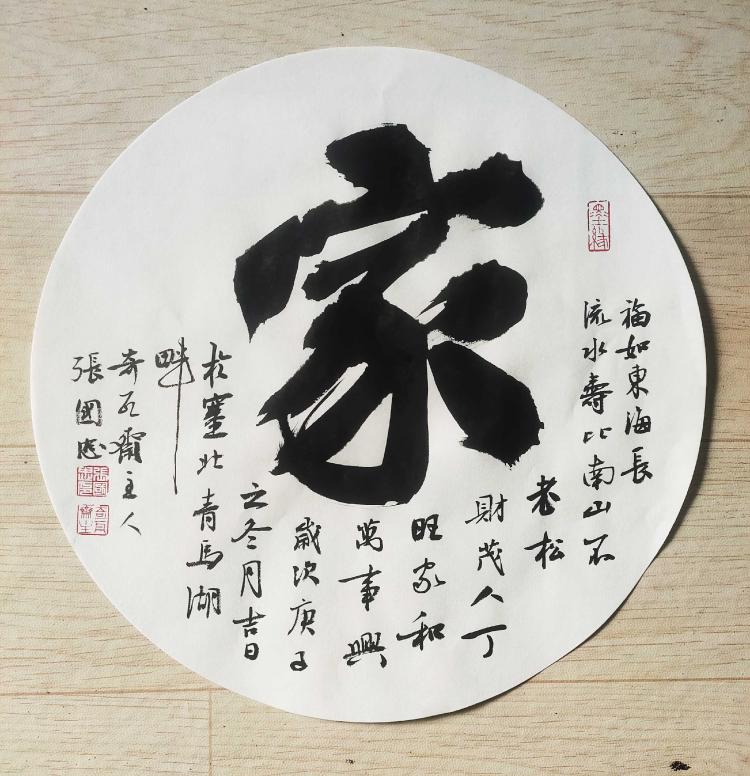 家
墨緣
福如東海長
流水壽比南山不
老松
財茂人丁
旺家和
萬事興
歲次庚子
之冬月吉日
於塞北青馬湖
畔
奇石齋主人
張國